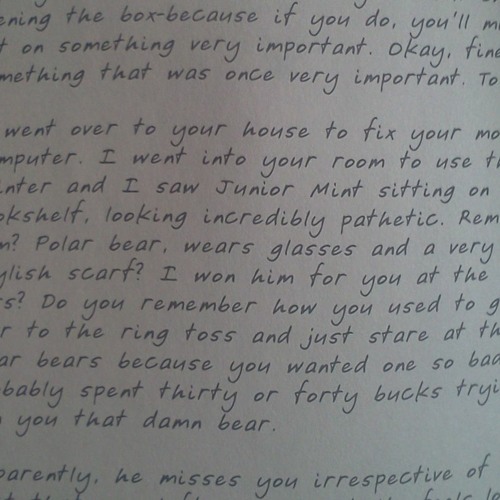 ening the box-because if you do, you'll m
t on something very important. Okay, fine
mething that was once very important. To
went over to your house to fix your mo
mputer. I went into your room to use th
inter and I saw Junior Mint sitting on
okshelf, looking incredibly pathetic. Rem
m? Polar bear, wears glasses and a very
ylish scarf? I won him for you at the
rs? Do you remember how you used to g
r to the ring toss and just stare at th
ar bears because you wanted one so bad
bably spent thirty or forty bucks tryi
you that damn bear.
parently, he misses you irrespective of